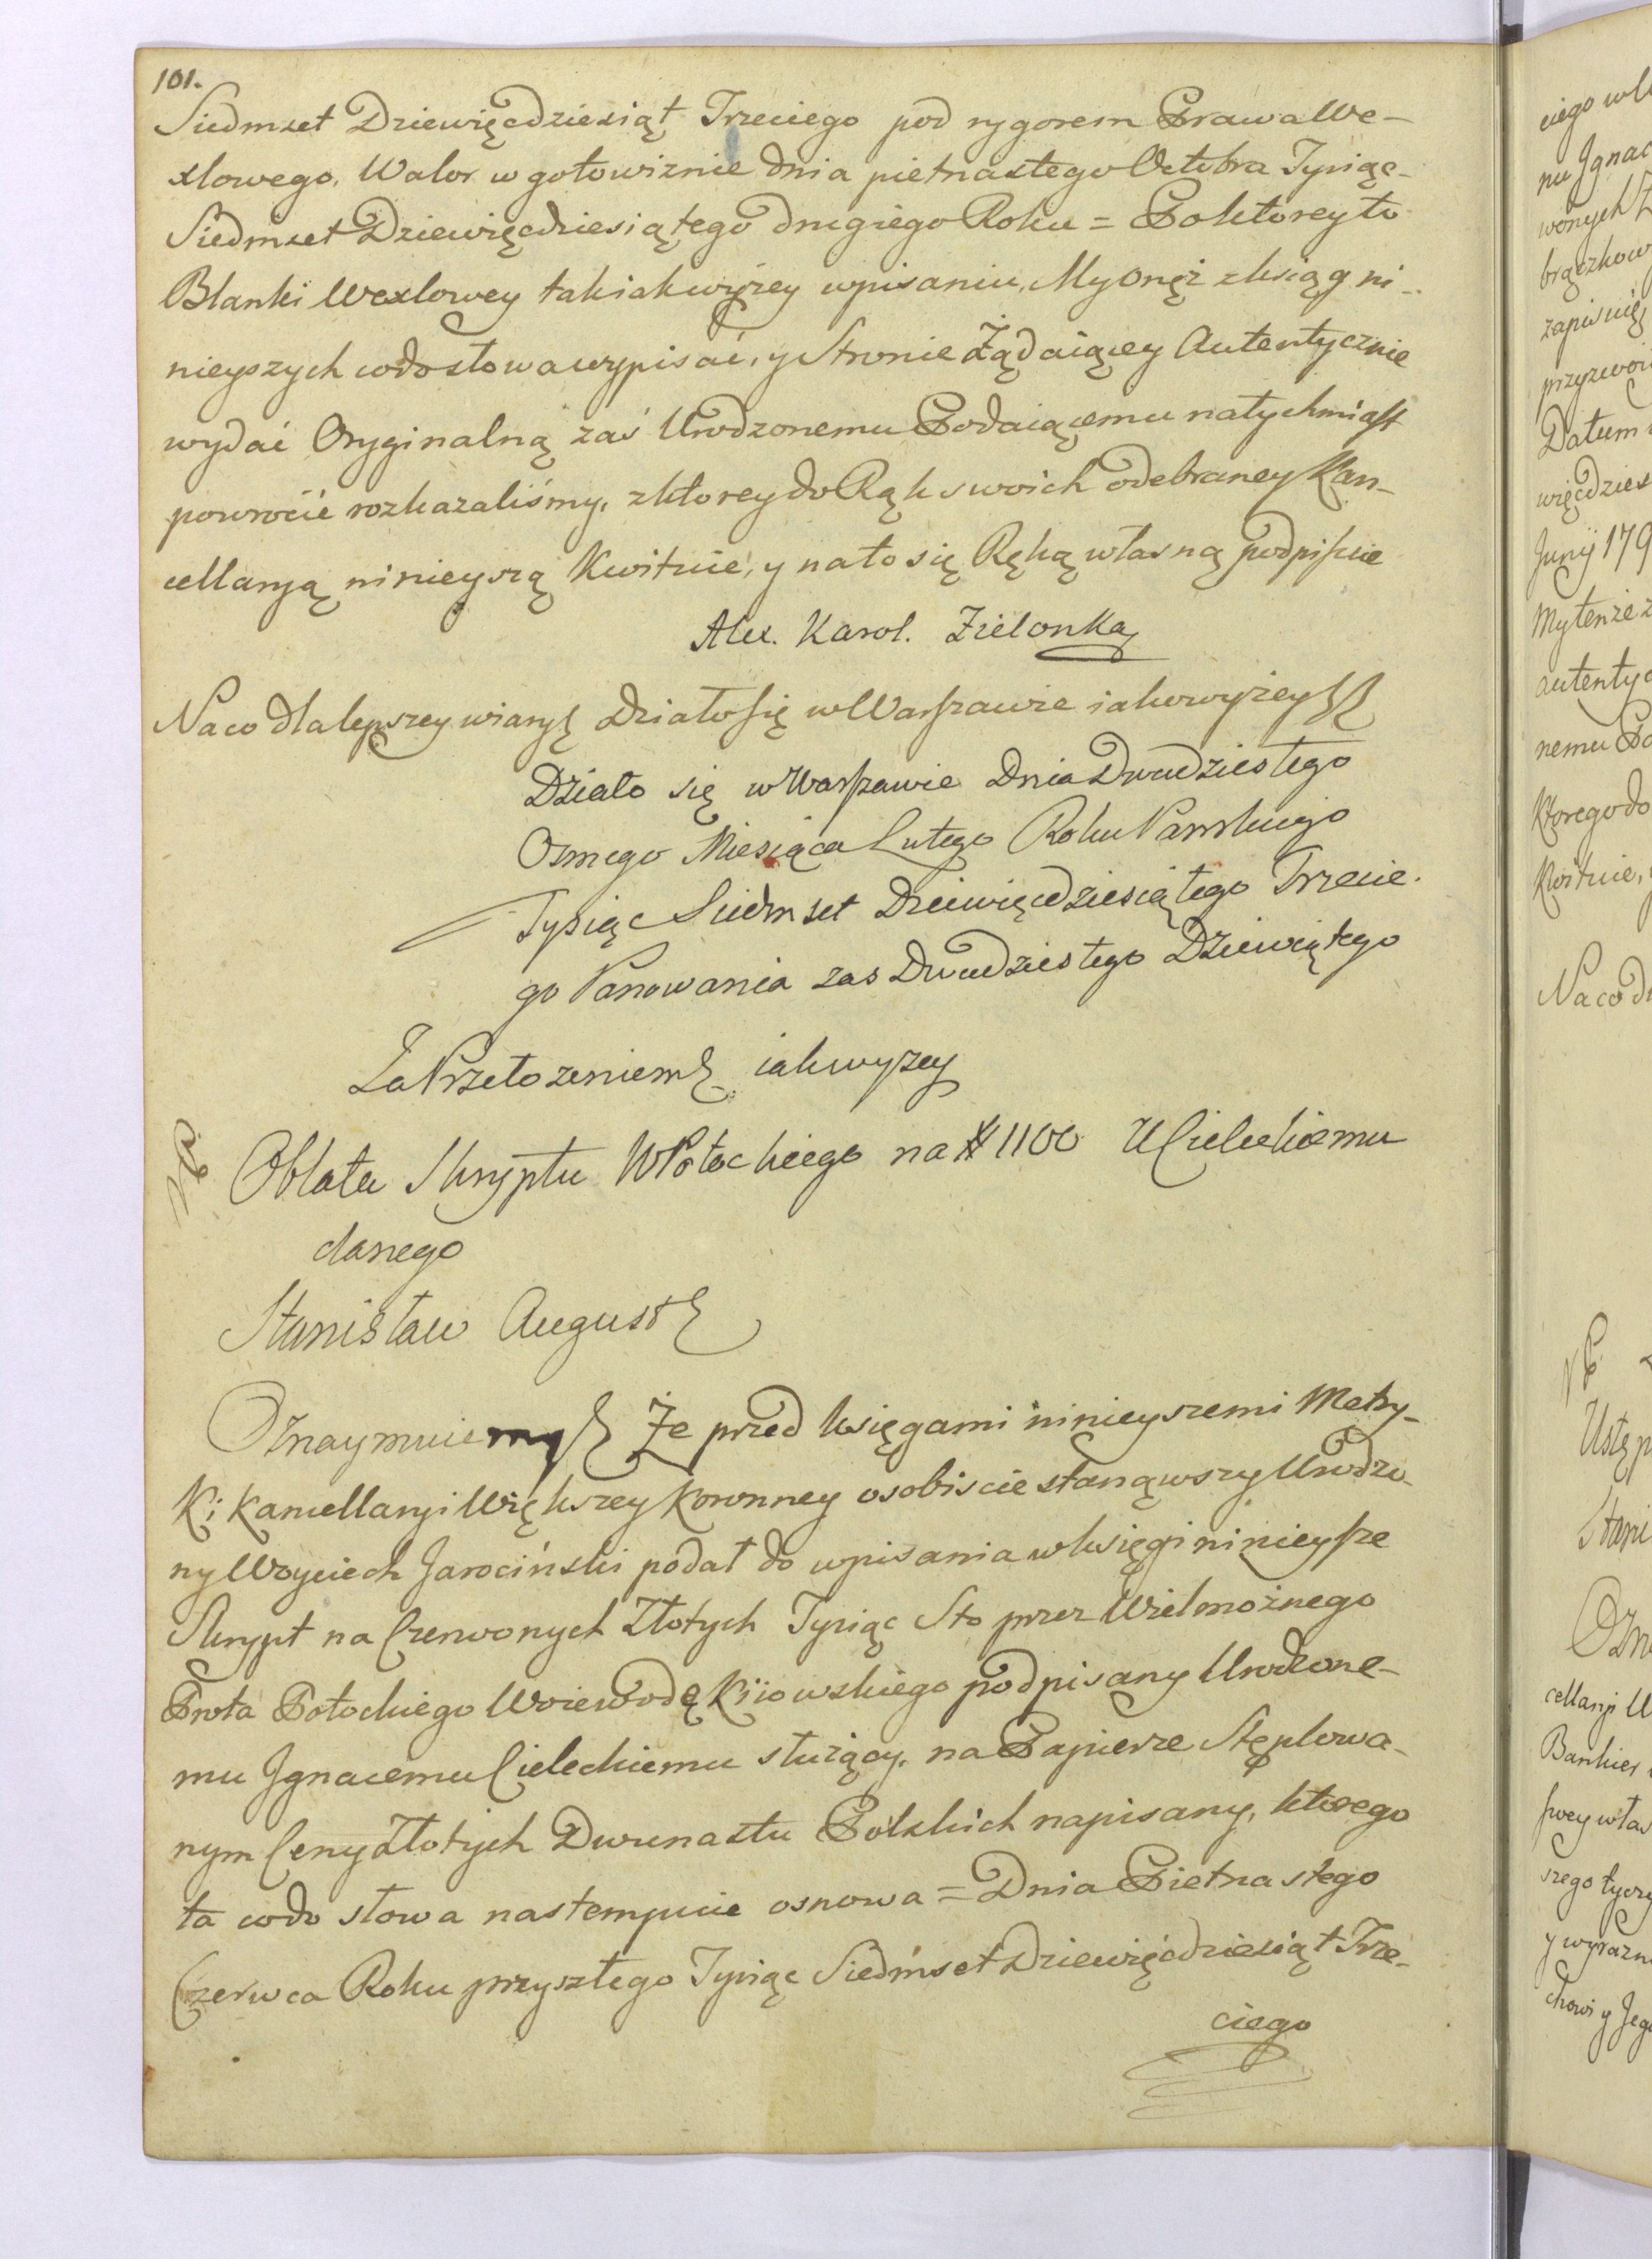 101.
Siedmset Dziewięcdziesiąt Trzeciego pod rygorem Prawa We-
xlowego. Walor w gotowiznie dnia pietnastego Octobra Tysiąc-
Siedmset Dziewięcdziesiątego drugiego Roku = Po ktorey to
Blanki Wexlowey tak iak wyżey wpisaniu, My Onęż z ksiąg ni-
nieyszych co do słowa wypisać, y Stronie Żądaiącey Autentycznie
wydać Oryginalną zaś Urodzonemu Podaiącemu natychmiast
powrocić rozkazaliśmy, z ktorey do Rąk swoich odebraney Kan-
cellaryą ninieyszą Kwituie, y na to się Ręką własną podpisuie
Alex. Karol. Zielonka
Na co dla lepszey wiary Działo się w Warszawie iako wyżey
Działo się w Warszawie Dnia Dwudziestego
Osmego Miesiąca Lutego Roku Panskiego
Tysiąc Siedmset Dziewięcdziesiątego Trzecie-
go Panowania zas Dwudziestego Dziewiątego
Za Przełozeniem iak wyzey
Oblata Skryptu W Potockiego na # 1100 U Cieleckiemu
danego
Stanisław August
Oznaymuiemy Że przed księgami ninieyszemi Metry-
ki Kancellaryi Większey Koronney osobiscie stanąwszy Urodzo-
ny Woyciech Jarociński podał do wpisania w księgi ninieysze
Skrypt na Czerwonych Złotych Tysiąc Sto przez Wielmożnego
Prota Potockiego Woiewodę Kiiowskiego podpisany Urodzone-
mu Ignacemu Cieleckiemu służący, na Papierze Stęplowa-
nym Ceny Złotych Dwunastu Polskich napisany, ktorego
ta co do słowa nastempuie osnowa = Dnia Pietnastego
Czerwca Roku przyszłego Tysiąc Siedmset Dziewięćdziesiąt Trze-
ciego